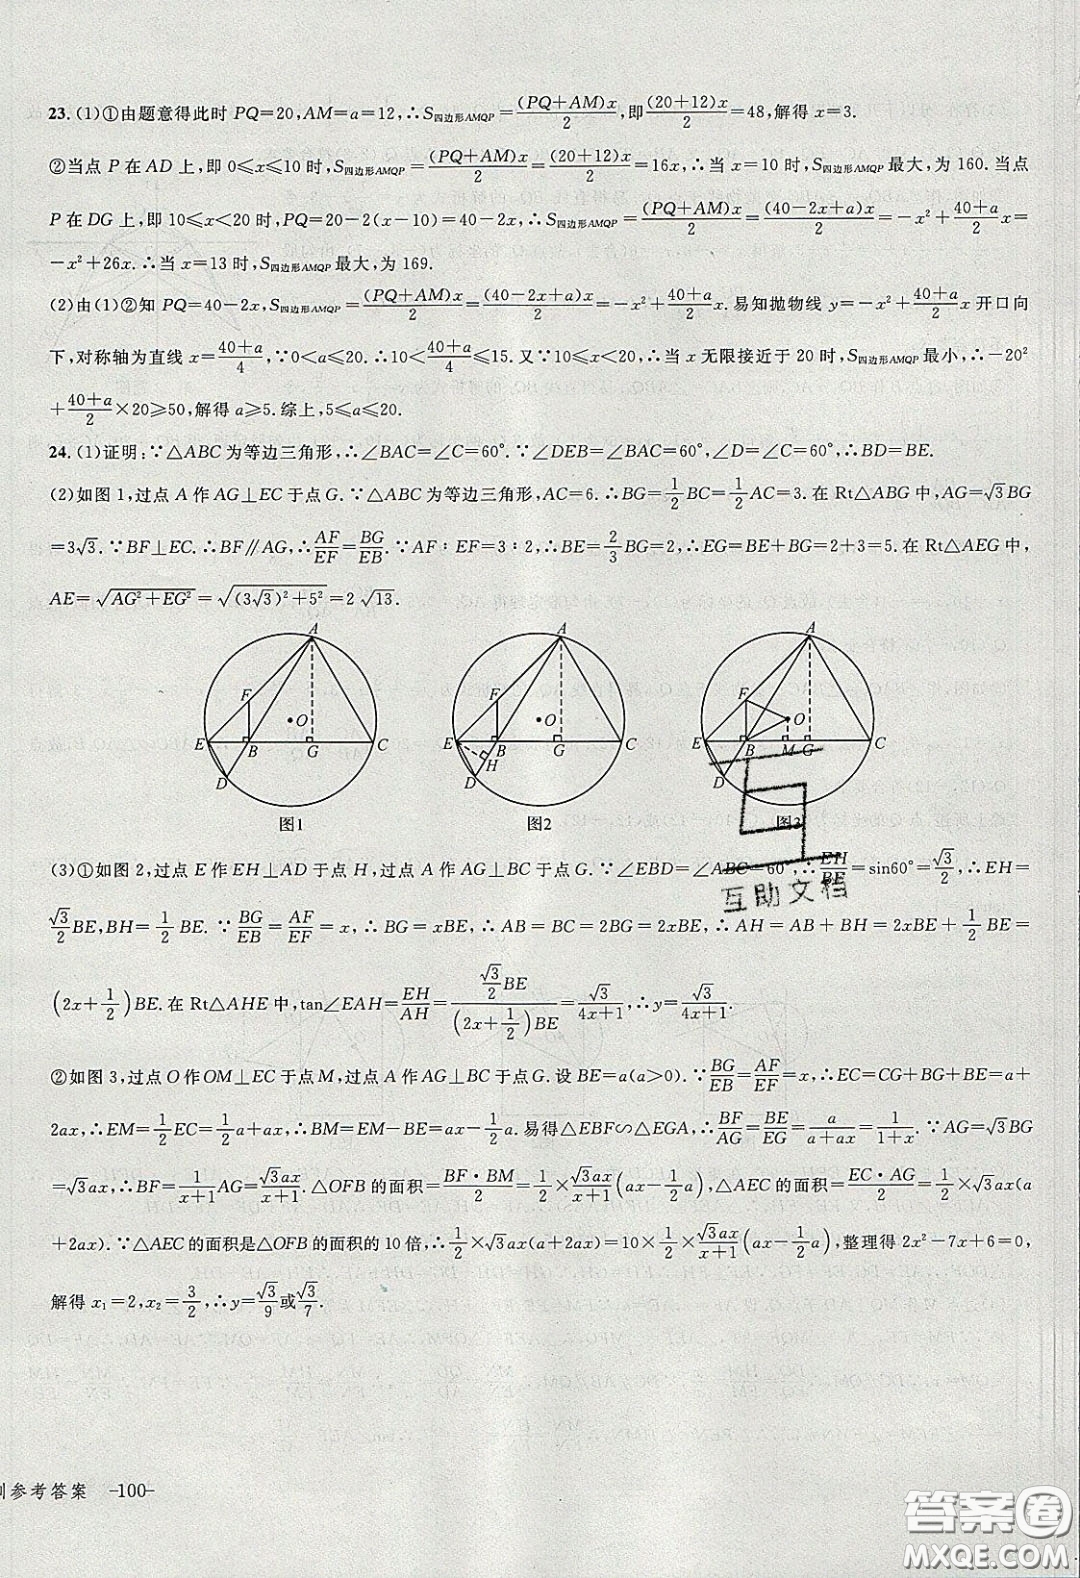 23.(1)①由题意得此时 PQ=20,AM=a=12,∴S四边形AMQP=(PQ+AM)x/2,即(20+12)x/2=48,解得 x=3.
②当点 P 在 AD 上,即 0≤x≤10 时,S四边形AMQP=(PQ+AM)x/2=(20+12)x/2=16x,∴当 x=10 时,S四边形AMQP最大,为 160.当点
P 在 DG 上,即 10≤x<20 时,PQ=20-2(x-10)=40-2x,∴S四边形AMQP=(PQ+AM)x/2=(40-2x+a)x/2=-x²+(40+a)/2 x=
-x²+26x.∴当 x=13 时,S四边形AMQP最大,为 169.
(2)由(1)②知 PQ=40-2x,S四边形AMQP=(PQ+AM)x/2=(40-2x+a)x/2=-x²+(40+a)/2 x.易知抛物线 y=-x²+(40+a)/2 x 开口向
下,对称轴为直线 x=(40+a)/4,∵0<a≤20.∴10<(40+a)/4≤15.又∵10≤x<20,∴当 x 无限接近于 20 时,S四边形AMQP最小,∴-20²
+(40+a)/2×20≥50,解得 a≥5.综上,5≤a≤20.
24.(1)证明:∵△ABC 为等边三角形,∴∠BAC=∠C=60°.∵∠DEB=∠BAC=60°,∠D=∠C=60°,∴∠DEB=∠D,∴BD=BE.
(2)如图 1,过点 A 作 AG⊥EC 于点 G.∵△ABC 为等边三角形,AC=6.∴BG=1/2 BC=1/2 AC=3.在 Rt△ABG 中,AG=√3BG
=3√3.∵BF⊥EC.∴BF∥AG,∴AF/EF=BG/EB.∵AF∶EF=3∶2,∴BE=2/3 BG=2,∴EG=BE+BG=2+3=5.在 Rt△AEG 中,
AE=√(AG²+EG²)=√((3√3)²+5²)=2√13.
A F E B O G C D
图1
A F E B O G C H D
图2
A F E B O M G C D
图3
(3)①如图 2,过点 E 作 EH⊥AD 于点 H,过点 A 作 AG⊥BC 于点 G.∵∠EBD=∠ABC=60°,∴EH/BE=sin60°=√3/2,∴EH=
√3/2 BE,BH=1/2 BE.∵BG/EB=AF/EF=x,∴BG=xBE,∴AB=BC=2BG=2xBE,∴AH=AB+BH=2xBE+1/2 BE=
(2x+1/2)BE.在 Rt△AHE 中,tan∠EAH=EH/AH=(√3/2 BE)/((2x+1/2)BE)=√3/(4x+1),∴y=√3/(4x+1).
②如图 3,过点 O 作 OM⊥EC 于点 M,过点 A 作 AG⊥BC 于点 G.设 BE=a(a>0).∵BG/EB=AF/EF=x,∴EC=CG+BG+BE=a+
2ax,∴EM=1/2 EC=1/2 a+ax,∴BM=EM-BE=ax-1/2 a.易得△EBF∽△EGA,∴BF/AG=BE/EG=a/(a+ax)=1/(1+x).∵AG=√3BG
=√3ax,∴BF=1/(x+1) AG=√3ax/(x+1).△OFB 的面积=BF·BM/2=1/2×√3ax/(x+1)(ax-1/2 a),△AEC 的面积=EC·AG/2=1/2×√3ax(a
+2ax).∵△AEC 的面积是△OFB 的面积的 10 倍,∴1/2×√3ax(a+2ax)=10×1/2×√3ax/(x+1)(ax-1/2 a),整理得 2x²-7x+6=0,
解得 x₁=2,x₂=3/2,∴y=√3/9 或 √3/7.
互助文档
参考答案 -100-
答案圈
MXQE.COM